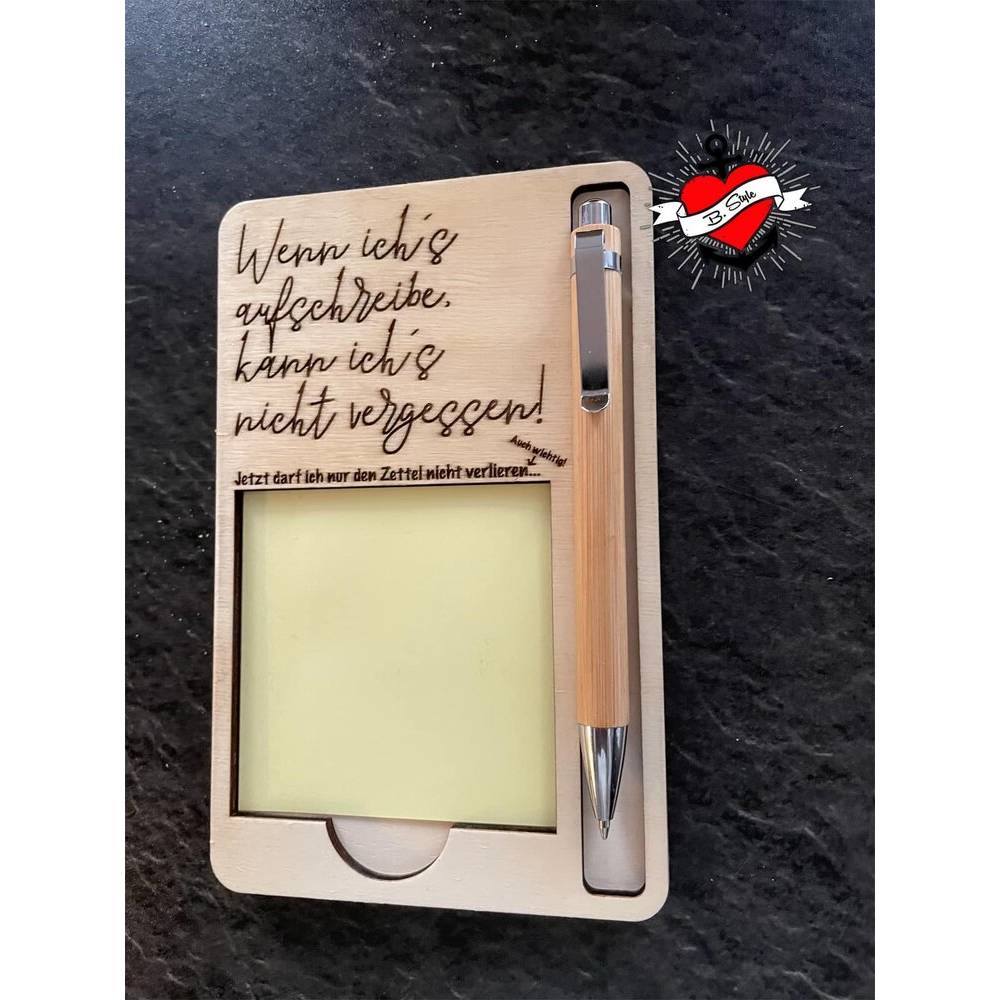 Wenn ich's
aufschreibe,
kann ich's
nicht vergessen!
Auch wichtig!
Jetzt darf ich nur den Zettel nicht verlieren...
B. Style